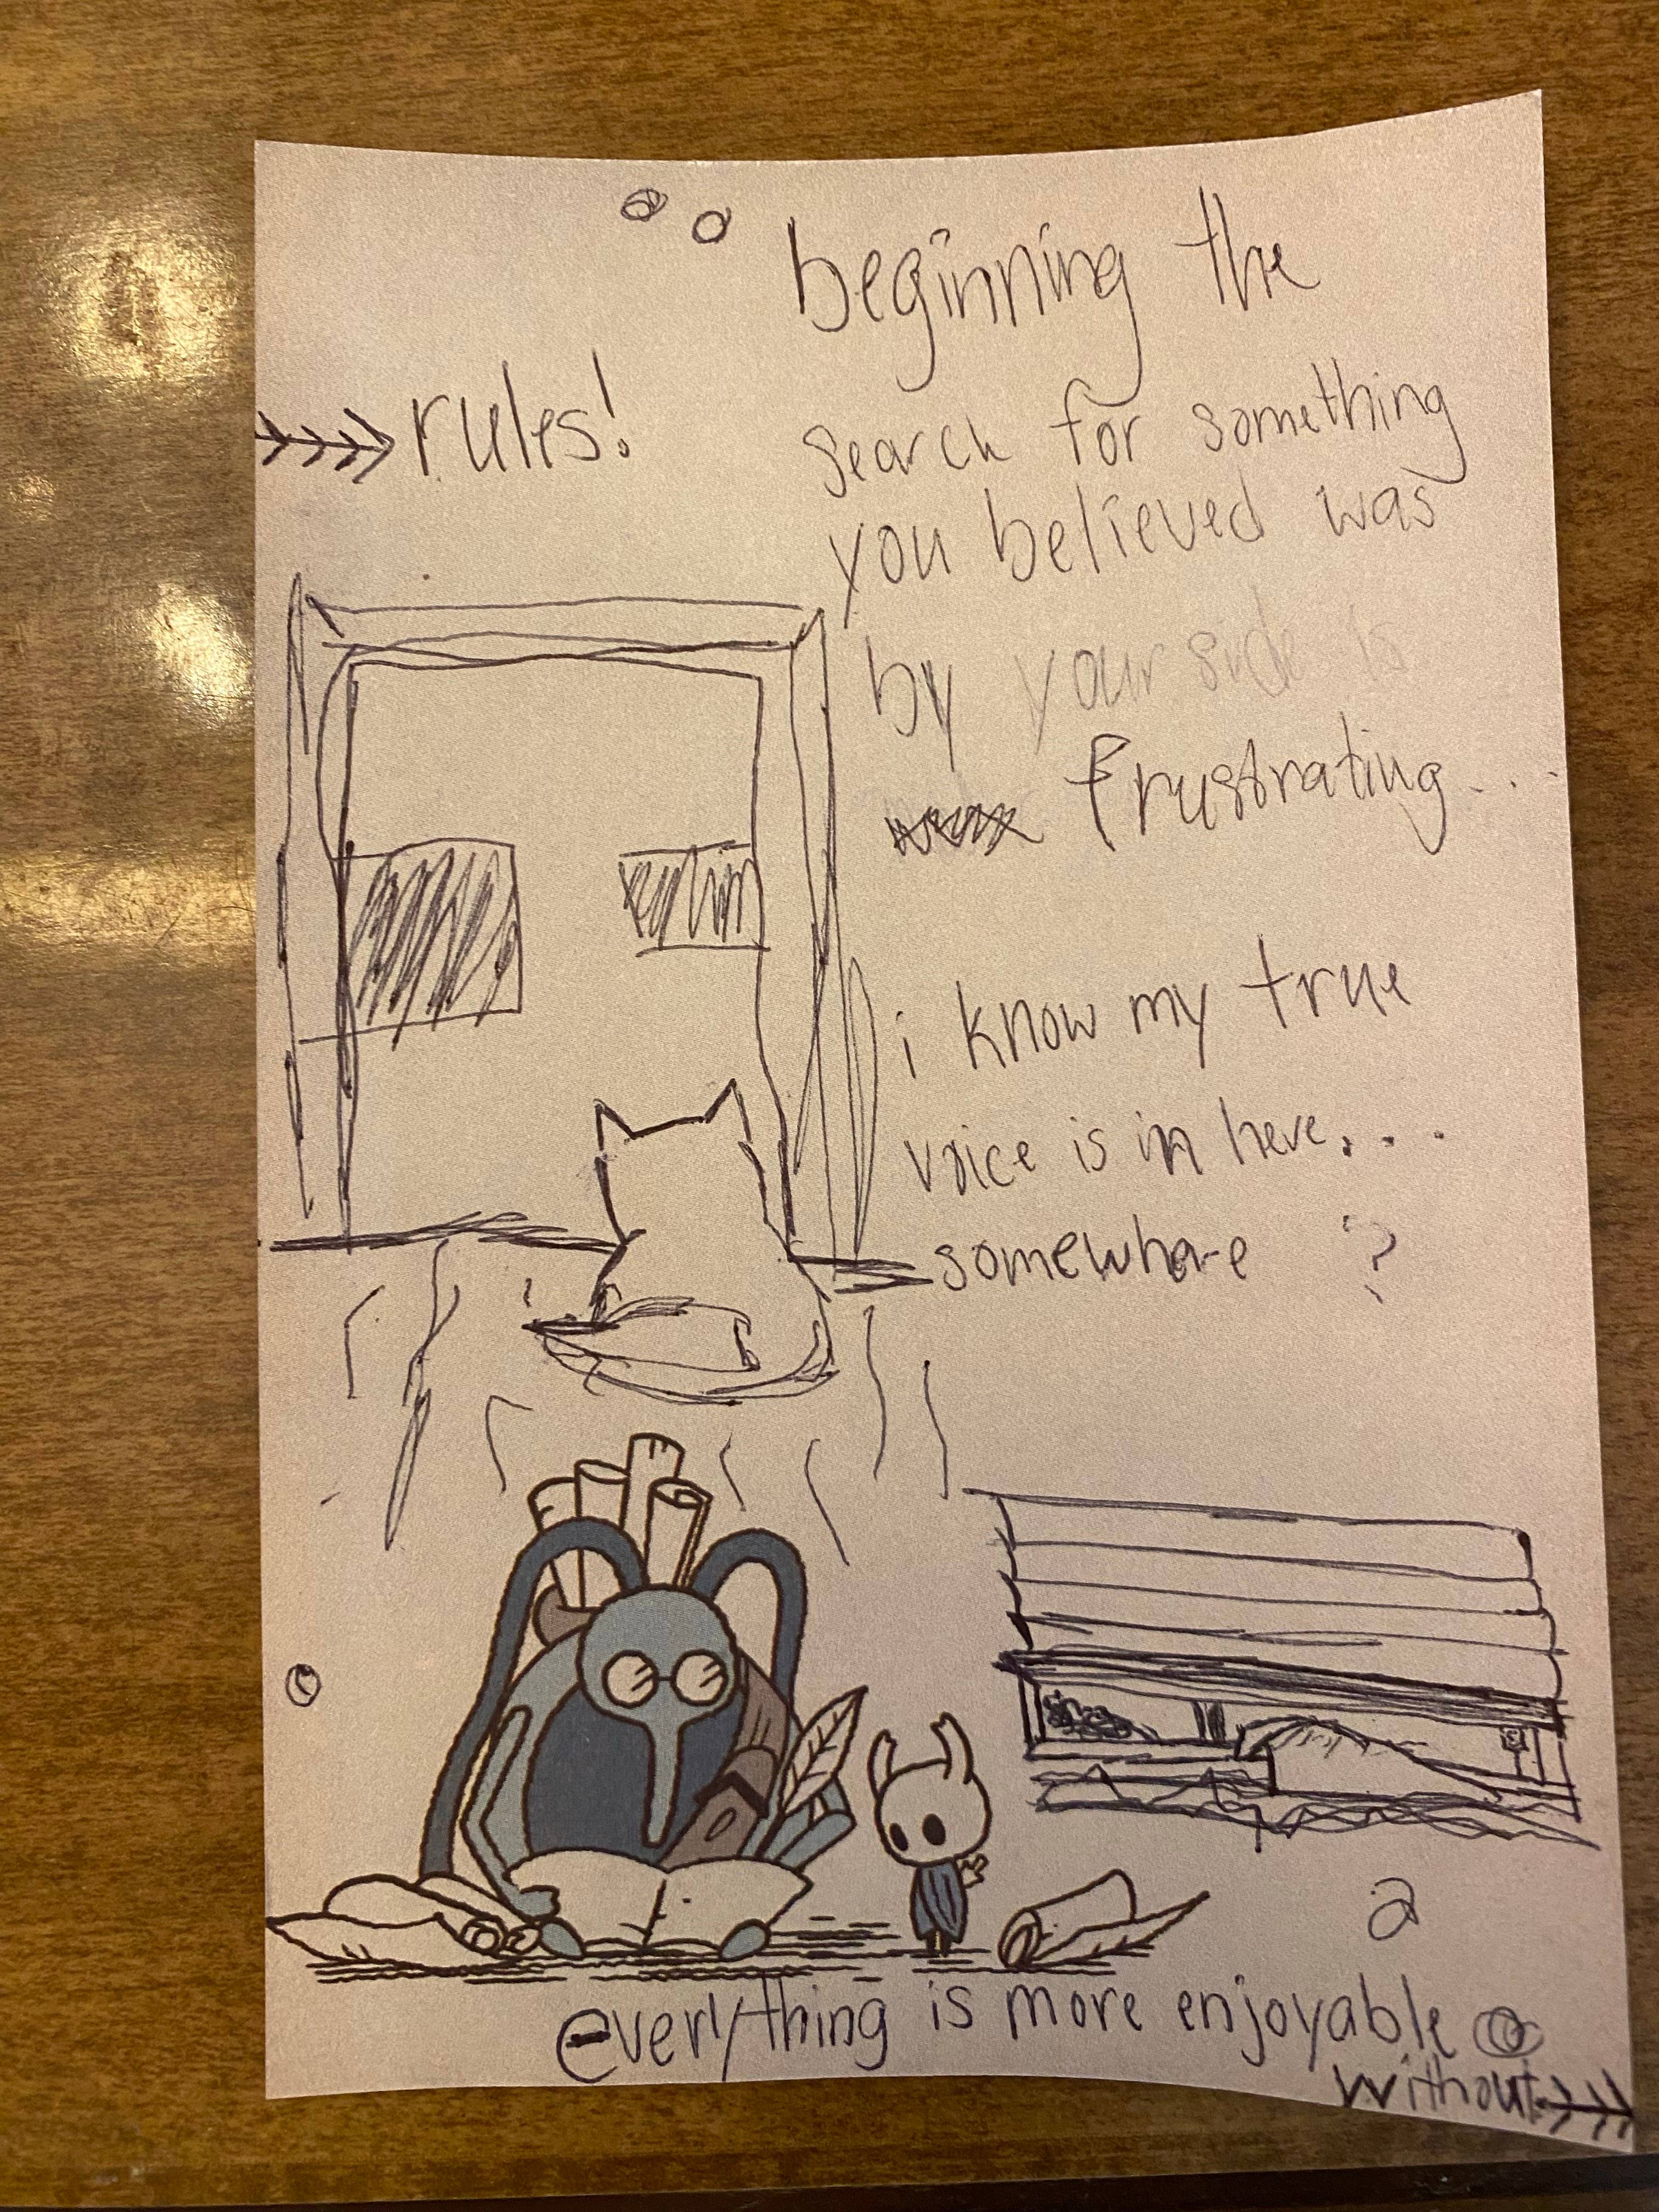 beginning the
rules!
search for something
you believed was
by your side is
frustrating...
i know my true
voice is in here...
somewhere ?
everything is more enjoyable
without